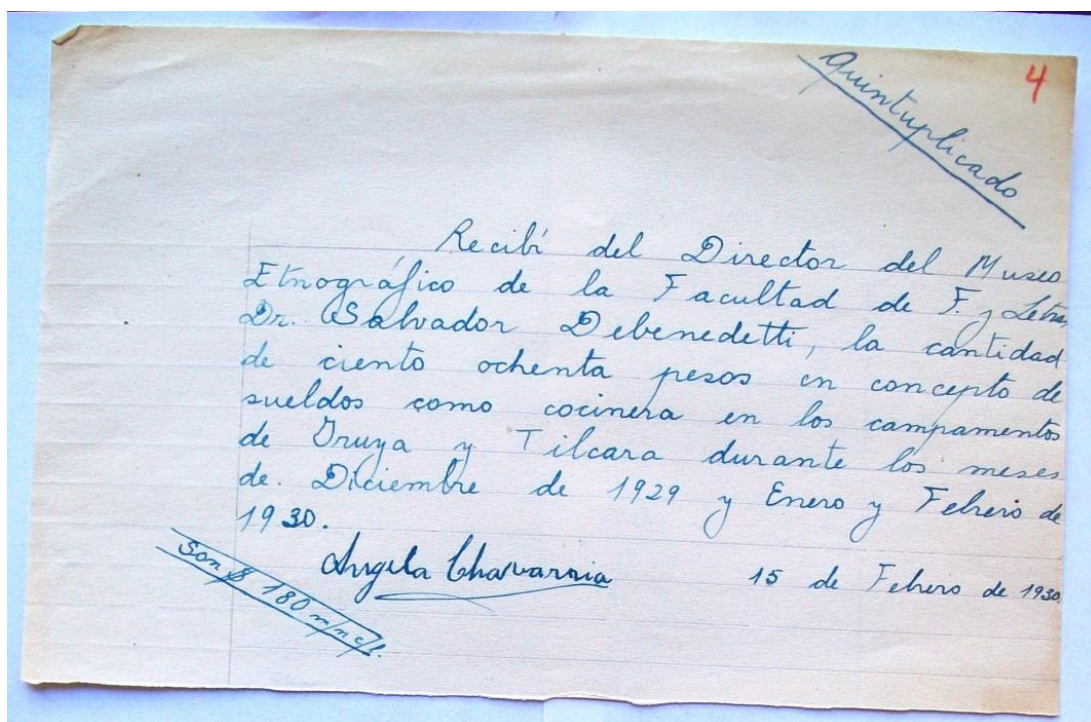 4
Quintuplicado
Recibí del Director del Museo
Etnográfico de la Facultad de F. y Letras,
Dr. Salvador Debenedetti, la cantidad
de ciento ochenta pesos en concepto de
sueldos como cocinera en los campamentos
de Iruya y Tilcara durante los meses
de. Diciembre de 1929 y Enero y Febrero de
1930.
Angela Chavarria
15 de Febrero de 1930.
Son $ 180 m/n c/l.